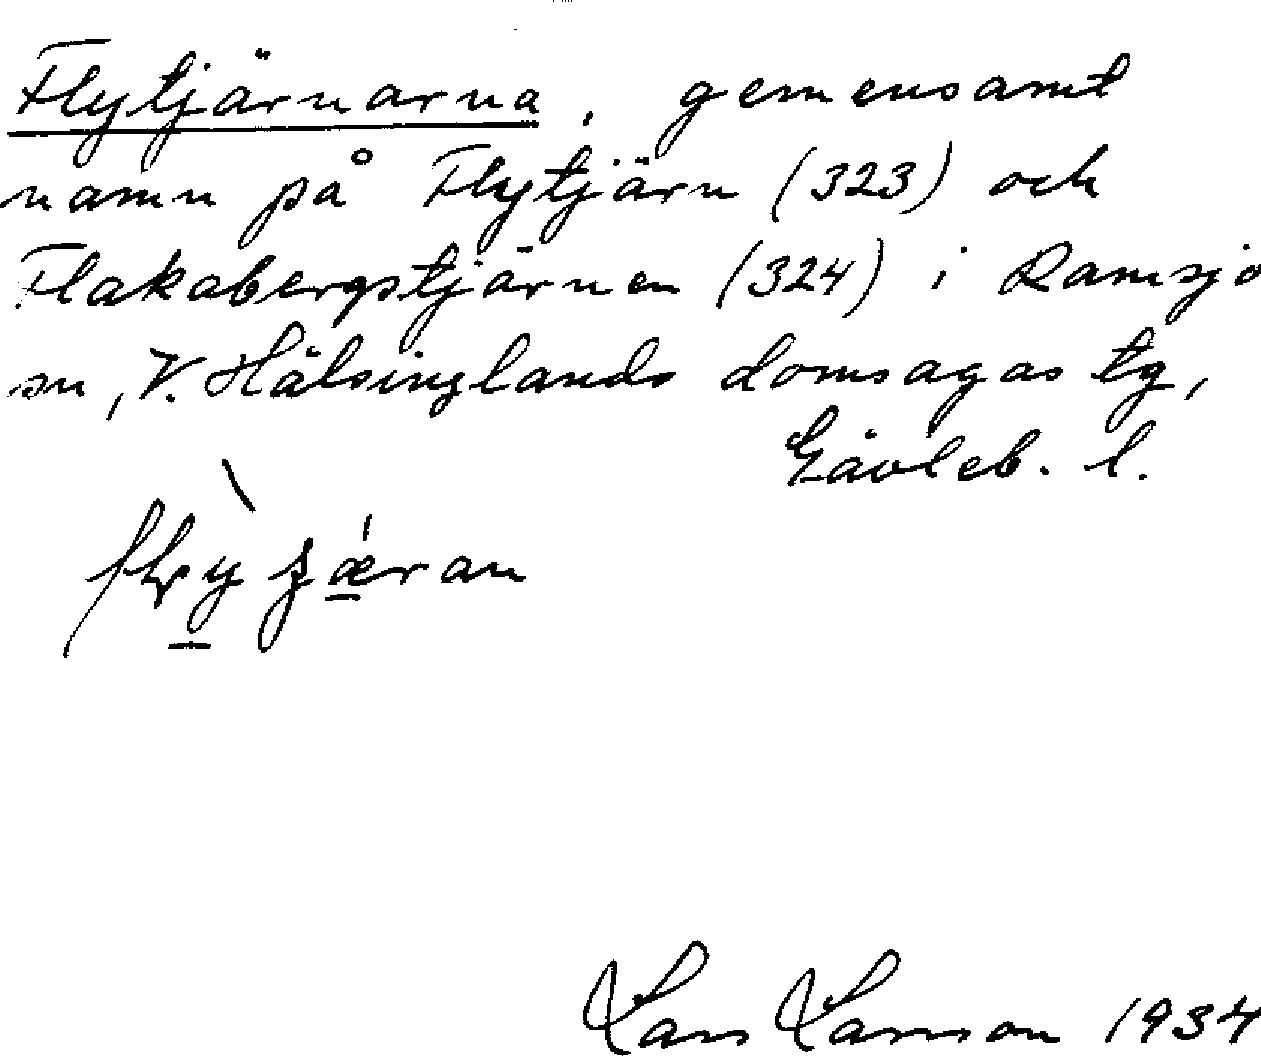 Flytjärnarna, gemensamt
namn på Flytjärn (323) och
Flakabergstjärnen (324) i Ramsjö
sn, V. Hälsinglands domsagas tg,
Gävleb. l.
Lars Larsson 1934